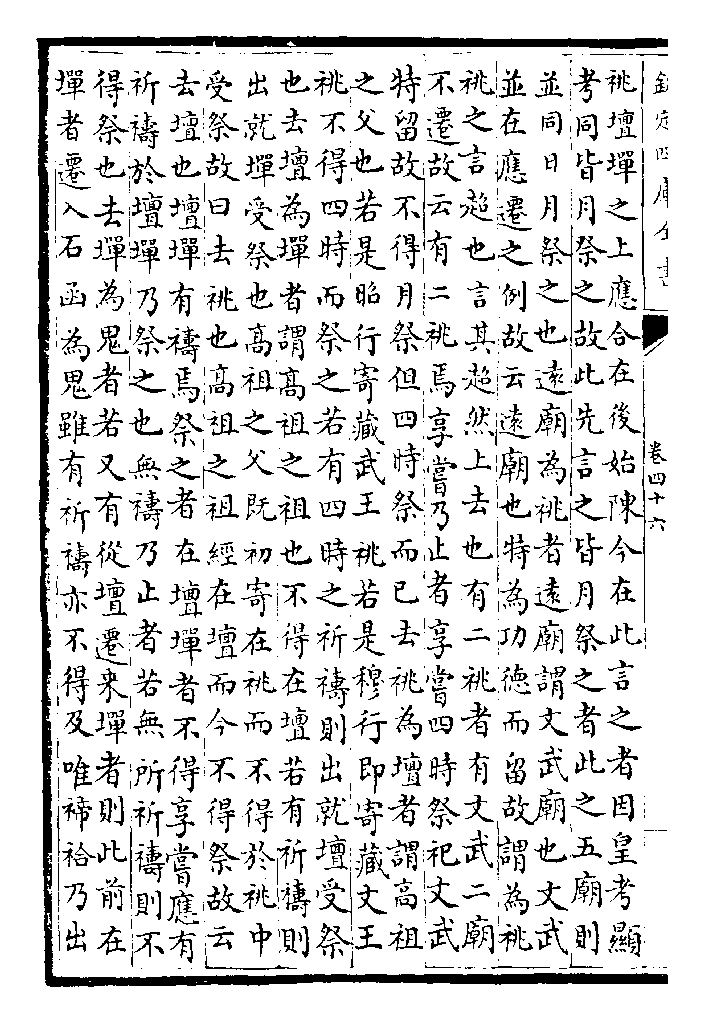 欽定四庫全書
卷四十六
祧壇墠之上應合在後始陳今在此言之者因皇考顯
考同皆月祭之故此先言之皆月祭之者此之五廟則
並同日月祭之也遠廟為祧者遠廟謂文武廟也文武
並在應遷之例故云遠廟也特為功德而留故謂為祧
祧之言超也言其超然上去也有二祧者有文武二廟
不遷故云有二祧焉享嘗乃止者享嘗四時祭祀文武
特留故不得月祭但四時祭而已去祧為壇者謂高祖
之父也若是昭行寄藏武王祧若是穆行即寄藏文王
祧不得四時而祭之若有四時之祈禱則出就壇受祭
也去壇為墠者謂高祖之祖也不得在壇若有祈禱則
出就墠受祭也高祖之父既初寄在祧而不得於祧中
受祭故曰去祧也高祖之祖經在壇而今不得祭故云
去壇也壇墠有禱焉祭之者在壇墠者不得享嘗應有
祈禱於壇墠乃祭之也無禱乃止者若無所祈禱則不
得祭也去墠為鬼者若又有從壇遷來墠者則此前在
墠者遷入石函為鬼雖有祈禱亦不得及唯禘祫乃出